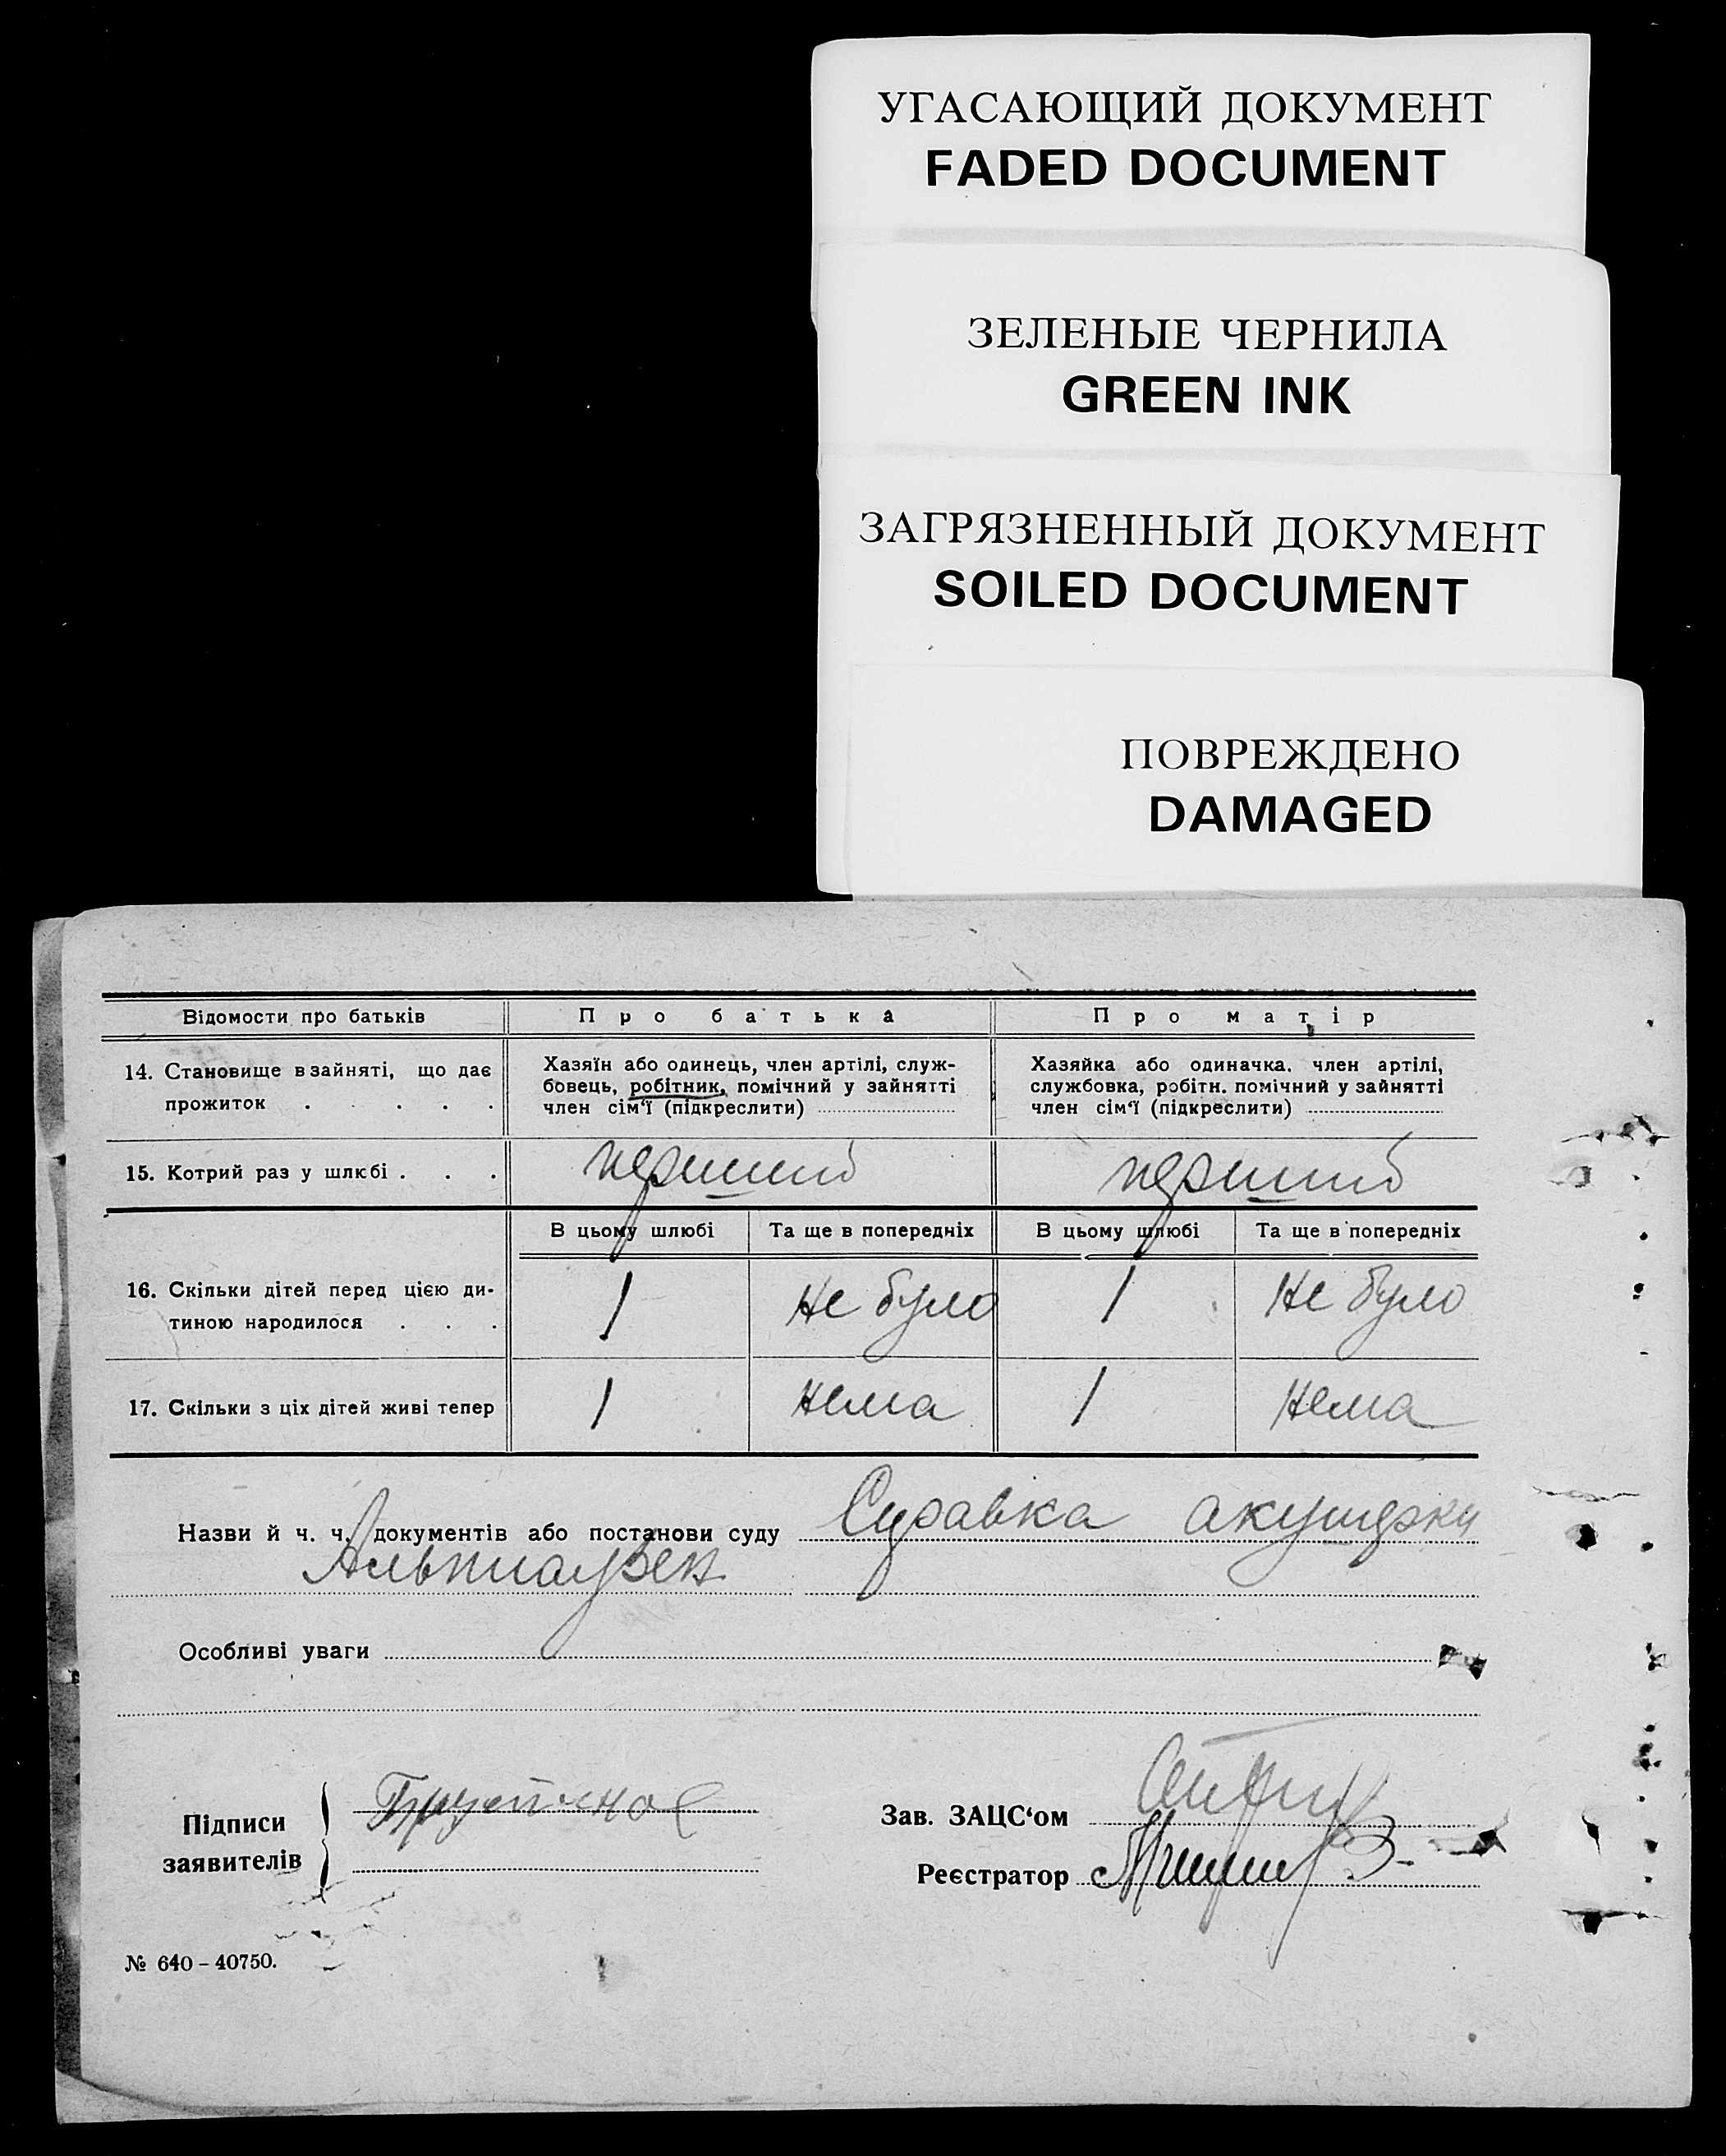 УГАСАЮЩИЙ ДОКУМЕНТ
FADED DOCUMENT
ЗЕЛЕНЫЕ ЧЕРНИЛА
GREEN INK
ЗАГРЯЗНЕННЫЙ ДОКУМЕНТ
SOILED DOCUMENT
ПОВРЕЖДЕНО
DAMAGED
Відомости про батьків Про батька Про матір
14. Становище в зайняті, що дає прожиток . . . . .
Хазяїн або одинець, член артілі, служ-
бовець, робітник, помічний у зайнятті
член сім‘ї (підкреслити)
Хазяйка або одиначка. член артілі,
службовка, робітн. помічний у зайнятті
член сім‘ї (підкреслити)
15. Котрий раз у шлюбі . . . перший перший
В цьому шлюбі Та ще в попередніх В цьому шлюбі Та ще в попередніх
16. Скільки дітей перед цією ди-
тиною народилося . . . 1 не було 1 не було
17. Скільки з ціх дітей живі тепер 1 нема 1 нема
Назви й ч. ч. документів або постанови суду Справка акушерки
Особливі уваги
Підписи
заявителів
Зав. ЗАЦС‘ом
Реєстратор
№ 640 – 40750.